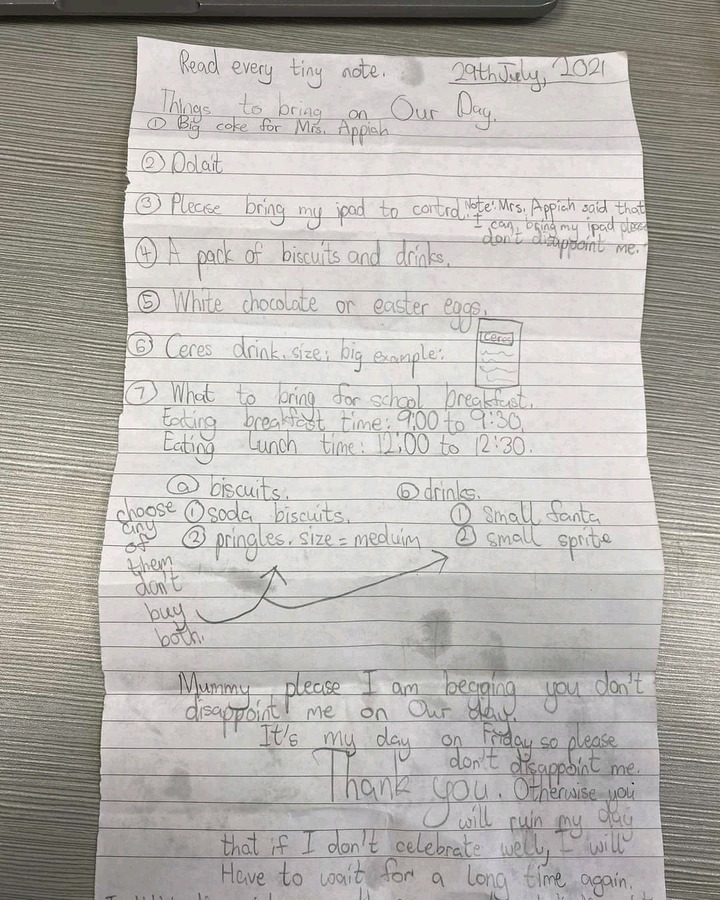 Read every tiny note. 29th July, 2021
Things to bring on Our Day.
① Big coke for Mrs. Appiah
② Dolait
③ Please bring my ipad to control. Note: Mrs. Appiah said that
I can bring my ipad please
don't disappoint me.
④ A pack of biscuits and drinks.
⑤ White chocolate or easter eggs.
⑥ Ceres drink. size: big example: Ceres
⑦ What to bring for school breakfast.
Eating breakfast time: 9:00 to 9:30.
Eating lunch time: 12:00 to 12:30.
ⓐ biscuits. ⓑ drinks.
choose ① soda biscuits. ① small fanta
any
of ② pringles. size = meduim ② small sprite
them
don't
buy
both.
Mummy please I am begging you don't
disappoint me on Our day.
It's my day on Friday so please
don't disappoint me.
Thank you. Otherwise you
will ruin my day
that if I don't celebrate well, I will
Have to wait for a long time again.